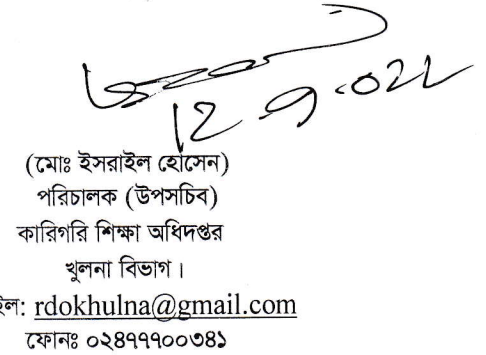 12-9-022
(মোঃ ইসরাইল হোসেন)
পরিচালক (উপসচিব)
কারিগরি শিক্ষা অধিদপ্তর
খুলনা বিভাগ।
ইল: rdokhulna@gmail.com
ফোনঃ ০২৪৭৭৭০০৩৪১